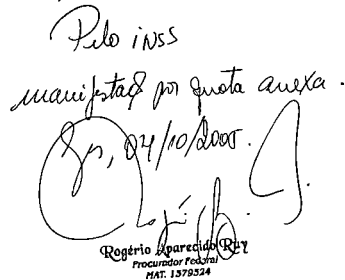 Pelo INSS
manifestaç por quota anexa.
04/10/2005.
Rogério Aparecido Ruy
Procurador Federal
MAT. 1379324